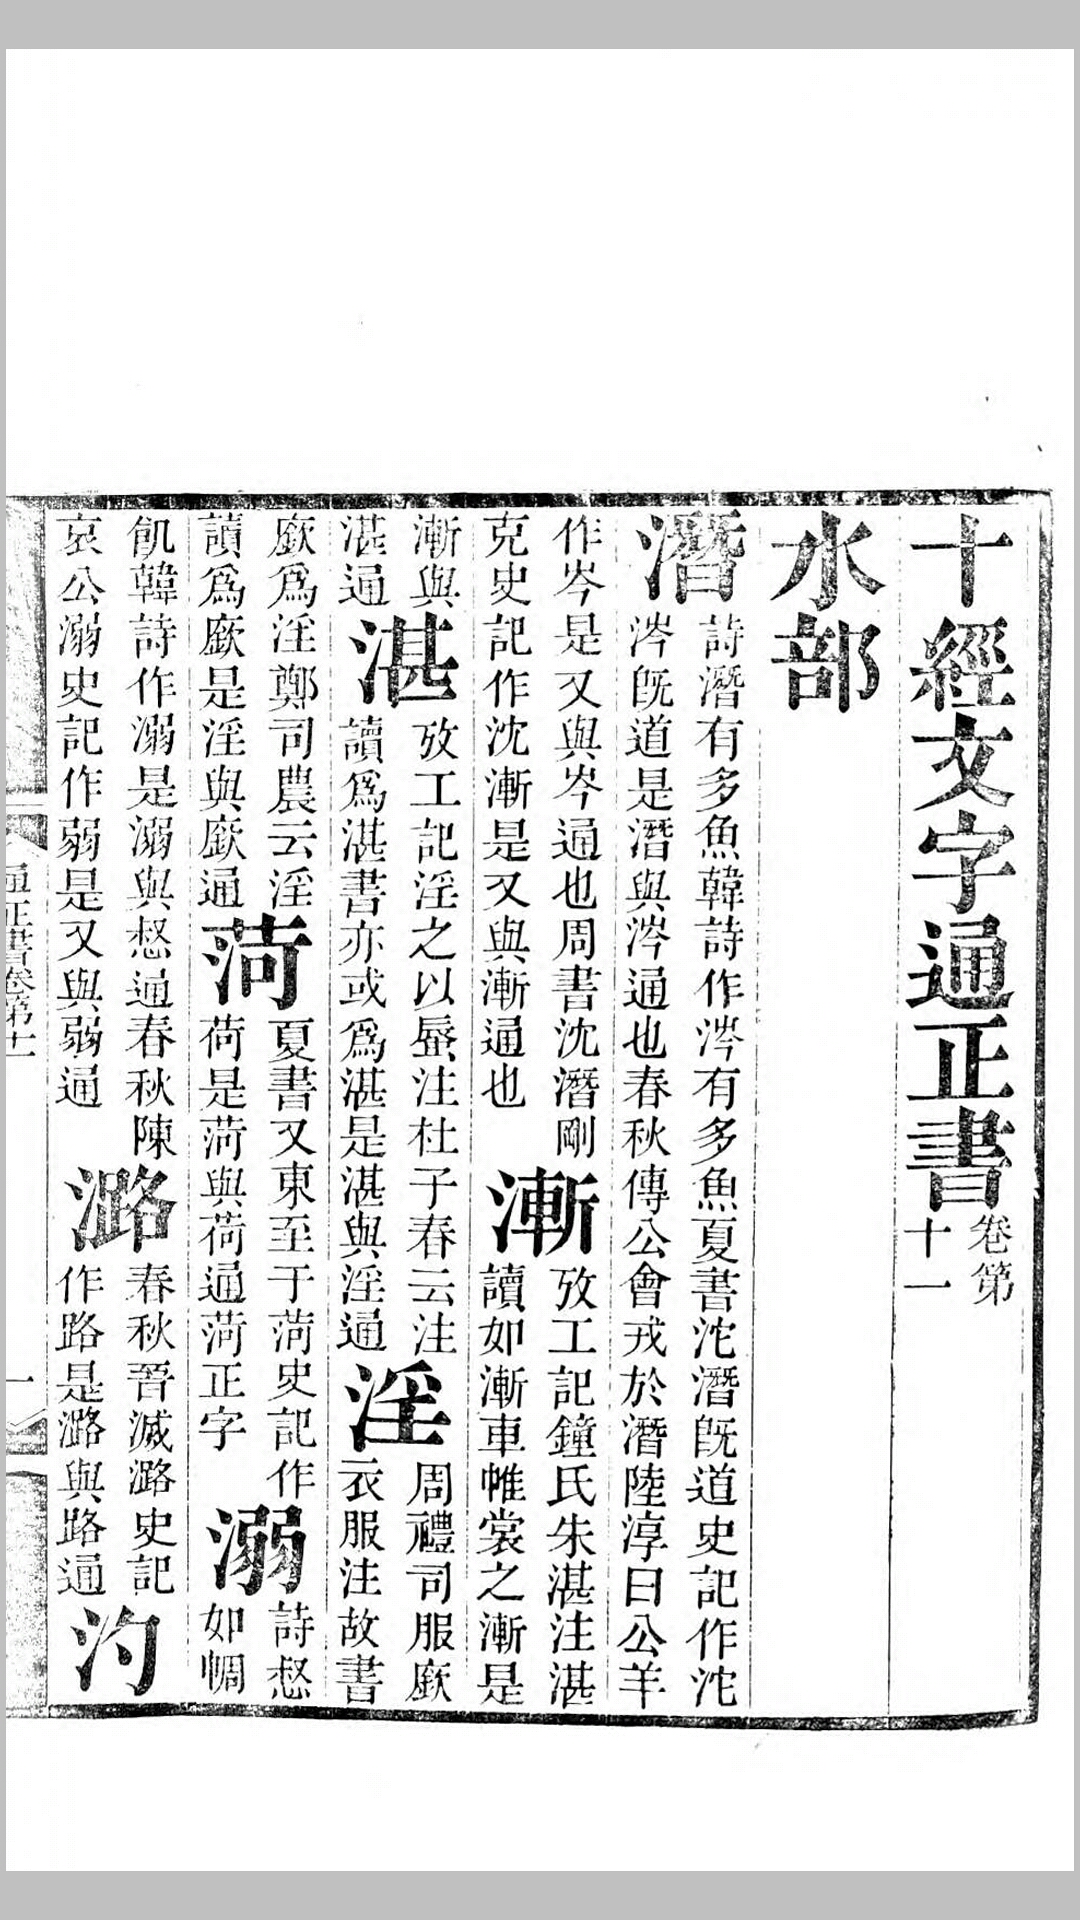 十經文字通正書
卷第
十一
水部
潛
詩潛有多魚韓詩作涔有多魚夏書沱潛旣道史記作沱
涔旣道是潛與涔通也春秋傳公會戎於潛陸淳曰公羊
作岑是又與岑通也周書沈潛剛
克史記作沈漸是又與漸通也
漸
攷工記鐘氏朱湛注湛
讀如漸車帷裳之漸是
漸與
湛通
湛
攷工記淫之以蜃注杜子春云注
讀爲湛書亦或爲湛是湛與淫通
淫
周禮司服廞
衣服注故書
廞爲淫鄭司農云淫
讀爲廞是淫與廞通
菏
夏書又東至于菏史記作
荷是菏與荷通菏正字
溺
詩惄
如惆
飢韓詩作溺是溺與惄通春秋陳
哀公溺史記作弱是又與弱通
潞
春秋晉滅潞史記
作路是潞與路通
汋
通正書卷第十一
一